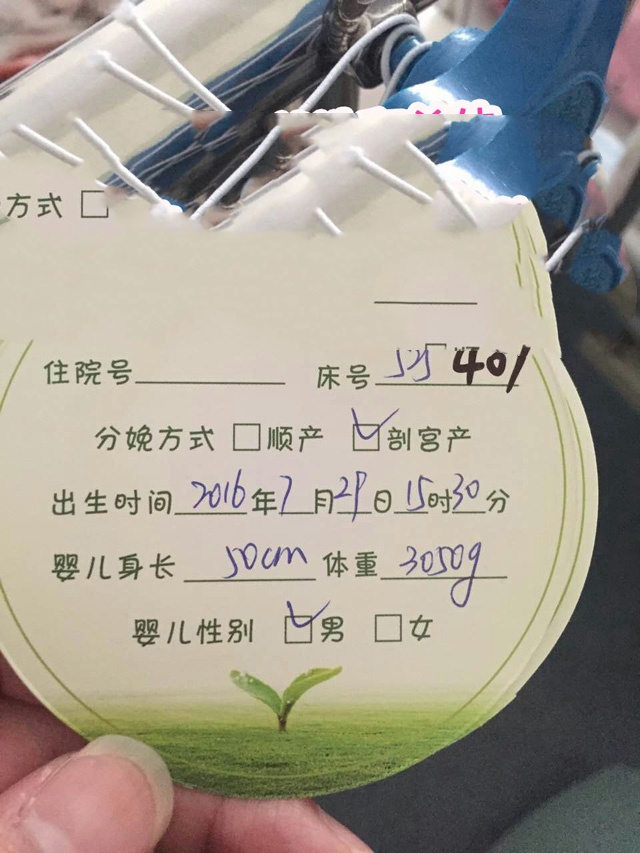 方式 □
住院号 床号 401
分娩方式 □顺产 ☑剖宫产
出生时间 2016年7月29日15时30分
婴儿身长 50cm 体重 3050g
婴儿性别 ☑男 □女